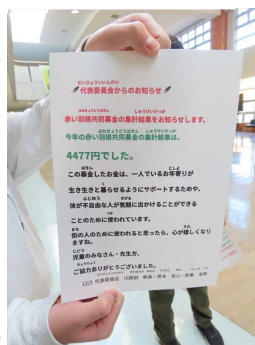 だいひょういいんかい
代表委員会からのお知らせ
はねきょうどうぼきん しゅうけいけっか
赤い羽根共同募金の集計結果をお知らせします。
はねきょうどうぼきん しゅうけいけっか
今年の赤い羽根共同募金の集計結果は、
4477円でした。
ぼきん としよ
この募金したお金は、一人でいるお年寄りが
く
生き生きと暮らせるようにサポートするためや、
ふじゆう きがる
体が不自由な人が気軽に出かけることができる
ことのために使われています。
まち うれ
街の人のために使われると思ったら、心が嬉しくなり
ますね。
じどう
児童のみなさん・先生方、
きょうりょく
ご協力ありがとうございました。
12/2 代表委員会